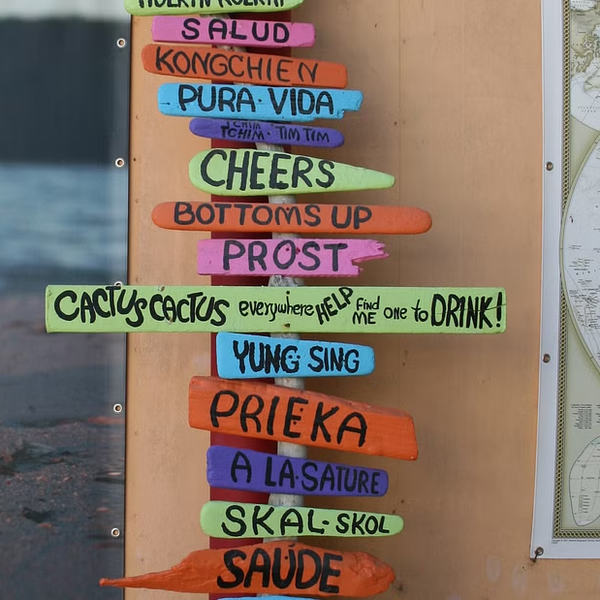 SALUD
KONGCHIEN
PURA·VIDA
TCHIM·TIM TIM
CHEERS
BOTTOMS UP
PROST
CACTUS CACTUS everywhere HELP find ME one to DRINK!
YUNG SING
PRIEKA
A LA·SATURE
SKAL·SKOL
SAUDE